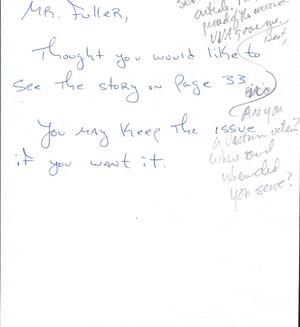 Mr. Fuller,
Thought you would like to
see the story on page 33.
You may keep the issue
if you want it.
article.
proud of the
VVA gave me.
Best,
Are you
a Vietnam veteran?
Where and
when did
you serve?